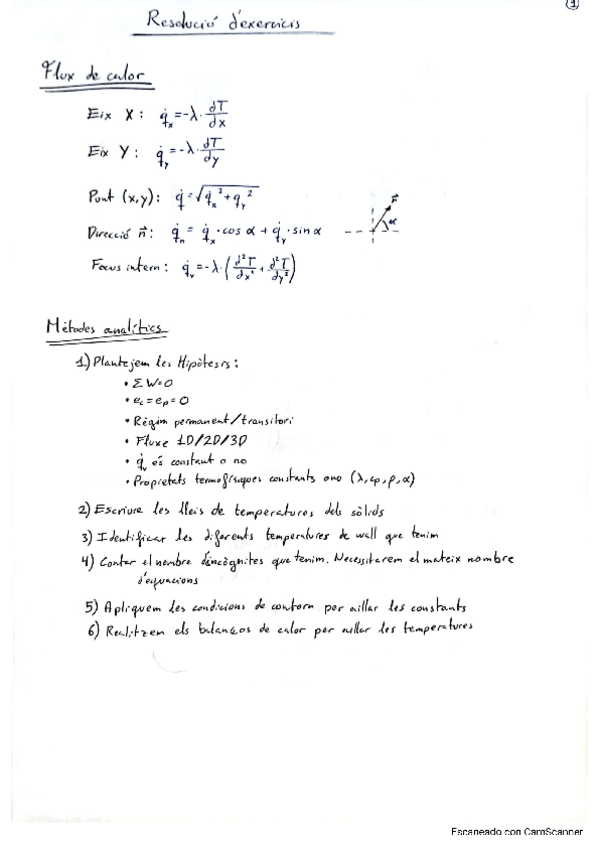 1
Resolució d'exercicis
Flux de calor
Eix X: q̇ₓ = -λ · dT/dx
Eix Y: q̇ᵧ = -λ · dT/dy
Punt (x,y): q̇ = √(q̇ₓ² + q̇ᵧ²)
Direcció n⃗: q̇ₙ = q̇ₓ · cos α + q̇ᵧ · sin α
n⃗
α
Focus intern: q̇ᵥ = -λ · (d²T/dx² + d²T/dy²)
Mètodes analítics
1) Plantejem les Hipòtesis:
• ΣW=0
• ec = ep = 0
• Règim permanent/transitori
• Fluxe 1D/2D/3D
• q̇ᵥ és constant o no
• Propietats termofísiques constants o no (λ, cp, ρ, α)
2) Escriure les lleis de temperatures dels sòlids
3) Identificar les diferents temperatures de wall que tenim
4) Contar el nombre d'incògnites que tenim. Necessitarem el mateix nombre
d'equacions
5) Apliquem les condicions de contorn per aillar les constants
6) Realitzem els balanços de calor per aillar les temperatures
Escaneado con CamScanner